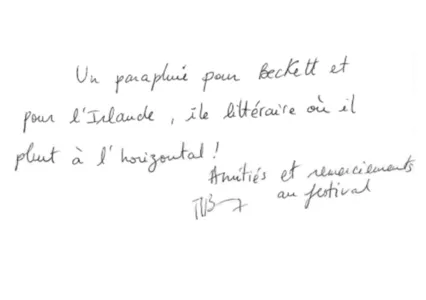 Un parapluie pour Beckett et
pour l'Irlande, île littéraire où il
pleut à l'horizontal !
Amitiés et remerciements
au festival